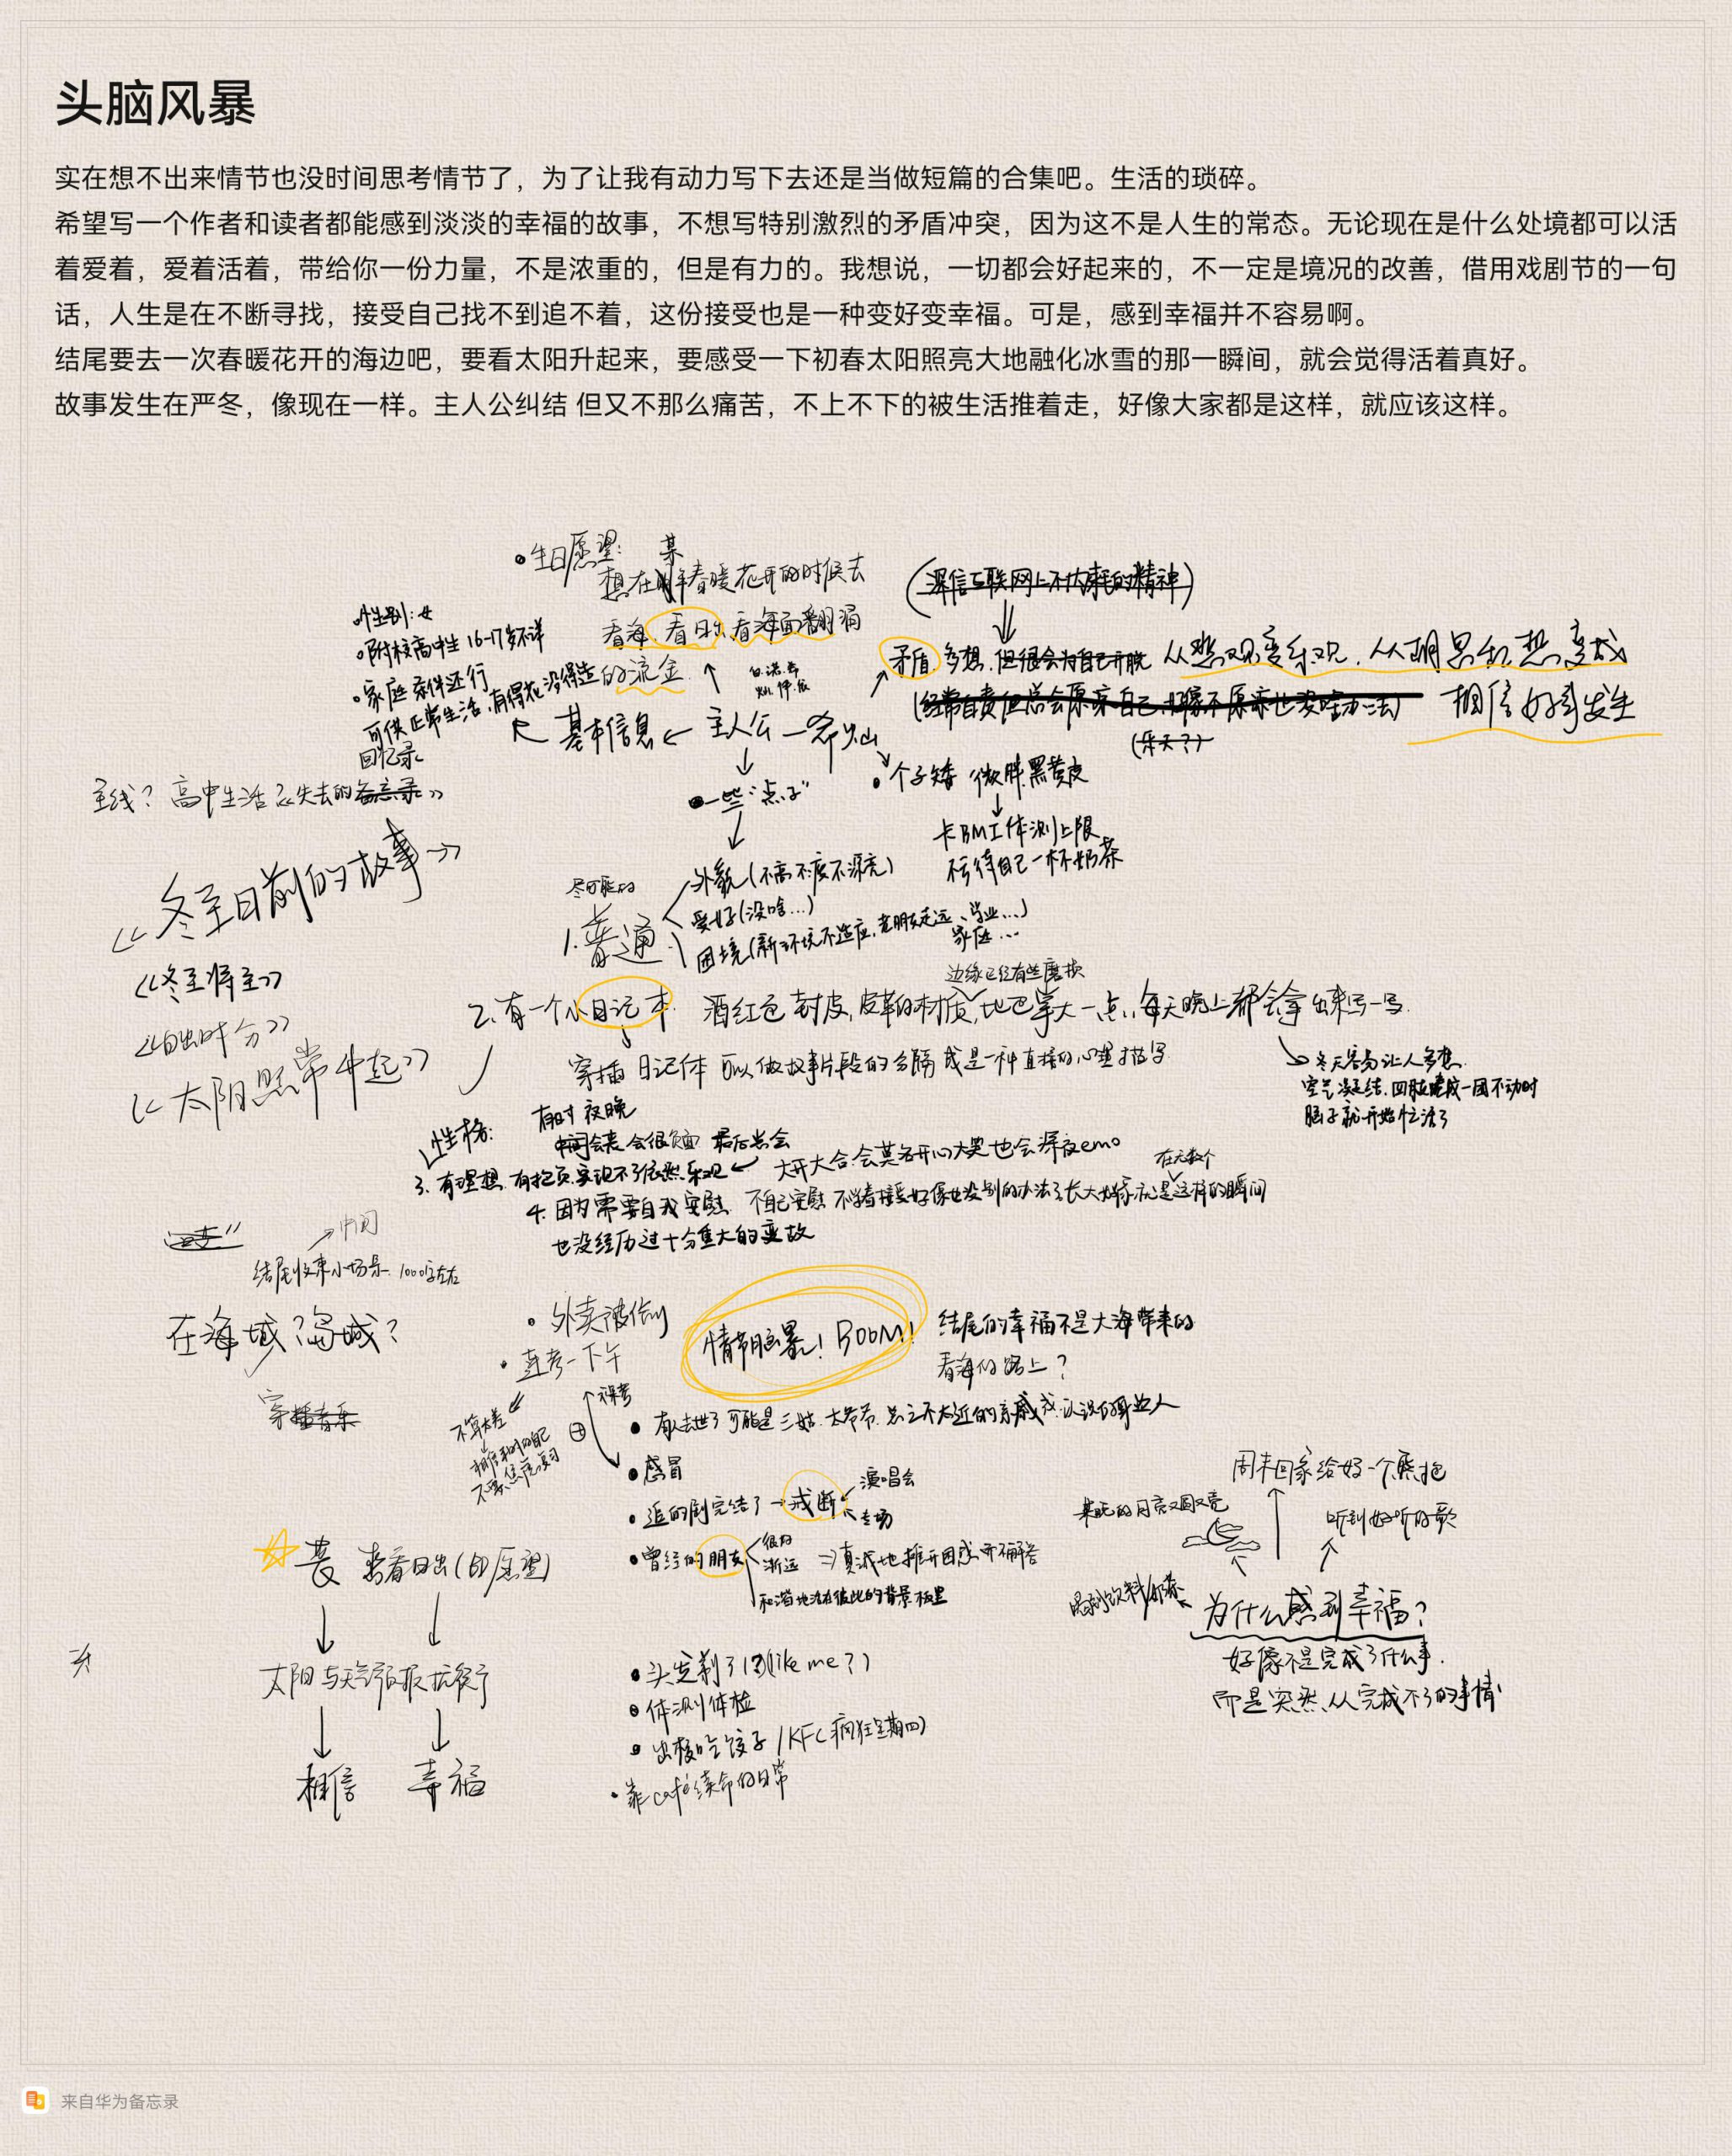 头脑风暴
实在想不出来情节也没时间思考情节了，为了让我有动力写下去还是当做短篇的合集吧。生活的琐碎。
希望写一个作者和读者都能感到淡淡的幸福的故事，不想写特别激烈的矛盾冲突，因为这不是人生的常态。无论现在是什么处境都可以活
着爱着，爱着活着，带给你一份力量，不是浓重的，但是有力的。我想说，一切都会好起来的，不一定是境况的改善，借用戏剧节的一句
话，人生是在不断寻找，接受自己找不到追不着，这份接受也是一种变好变幸福。可是，感到幸福并不容易啊。
结尾要去一次春暖花开的海边吧，要看太阳升起来，要感受一下初春太阳照亮大地融化冰雪的那一瞬间，就会觉得活着真好。
故事发生在严冬，像现在一样。主人公纠结 但又不那么痛苦，不上不下的被生活推着走，好像大家都是这样，就应该这样。
•生日愿望：某
想在年春暖花开的时候去
看海、看日出、看海面翻涌
的流金
(深信互联网上不内耗的精神)
•性别：女
•附校高中生 16-17岁不详
•家庭条件还行
可供正常生活，有得花没得造
矛盾 多想、但很会为自己开脱 从悲观变乐观、从胡思乱想变成
相信好事发生
(经常自责但总会原谅自己，好像不原谅也没啥办法)
(乐天？)
基本信息 ← 主人公
回忆录
主线？高中生活《失去的备忘录》
•一些“点子”
•个子矮 微胖 黑黄皮
卡BMI体测上限
亏待自己一杯奶茶
《冬至日前的故事》
尽可能的
1.普通
外貌(不高不瘦不漂亮)
爱好(没啥...)
困境(新环境不适应,老朋友走远、学业...)
家庭...
《冬至将至》
边缘已经有些磨损
2.有一个小日记本 酒红色封皮,皮革的材质,比巴掌大一点，每天晚上都会拿出来写一写
《日出时分》
《太阳照常升起》
穿插 日记体 可以做故事片段的分隔 或是一种直接的心理描写
冬天容易让人多想
空气凝结、四肢蜷成一团不动时
脑子就开始忙活了
性格：
有时 夜晚
中间会丧 会很负面 最后总会
3.有理想 有抱负 实现不了依然乐观 ← 大开大合 会莫名开心大笑也会深夜emo
在无数个
4.因为需要自我安慰 不自己安慰 不学着接受好像也没别的办法了 长大好像就是这样的瞬间
也没经历过十分重大的变故
中间
结尾收束小场景 1000字左右
在海城？岛城？
穿插音乐
•外卖被偷
•连考一下午
情节脑暴！BOOM！
结尾的幸福不是大海带来的
看海的路上？
不算太差
相信那时的自己
不要焦虑复习
裸考
•有人去世了 可能是三姑、大爷爷，总之不太近的亲戚 或 认识的耳边人
•感冒
•追的剧完结了→戒断
演唱会
专场
•曾经的朋友
很好
渐远
⇒真诚地摊开困惑 再解答
和谐地活在彼此的背景板里
丧 想看日出(即愿望)
太阳与天气预报抗衡了
相信 幸福
•头发剃了！？(like me？)
•体测体检
•出校吃饺子/KFC疯狂星期四
•靠café续命的日常
周末回家给妈一个熊抱
某晚的月亮又圆又亮
听到好听的歌
喝到饮料/奶茶
为什么感到幸福？
好像不是完成了什么事
而是突然从完成不了的事情
来自华为备忘录